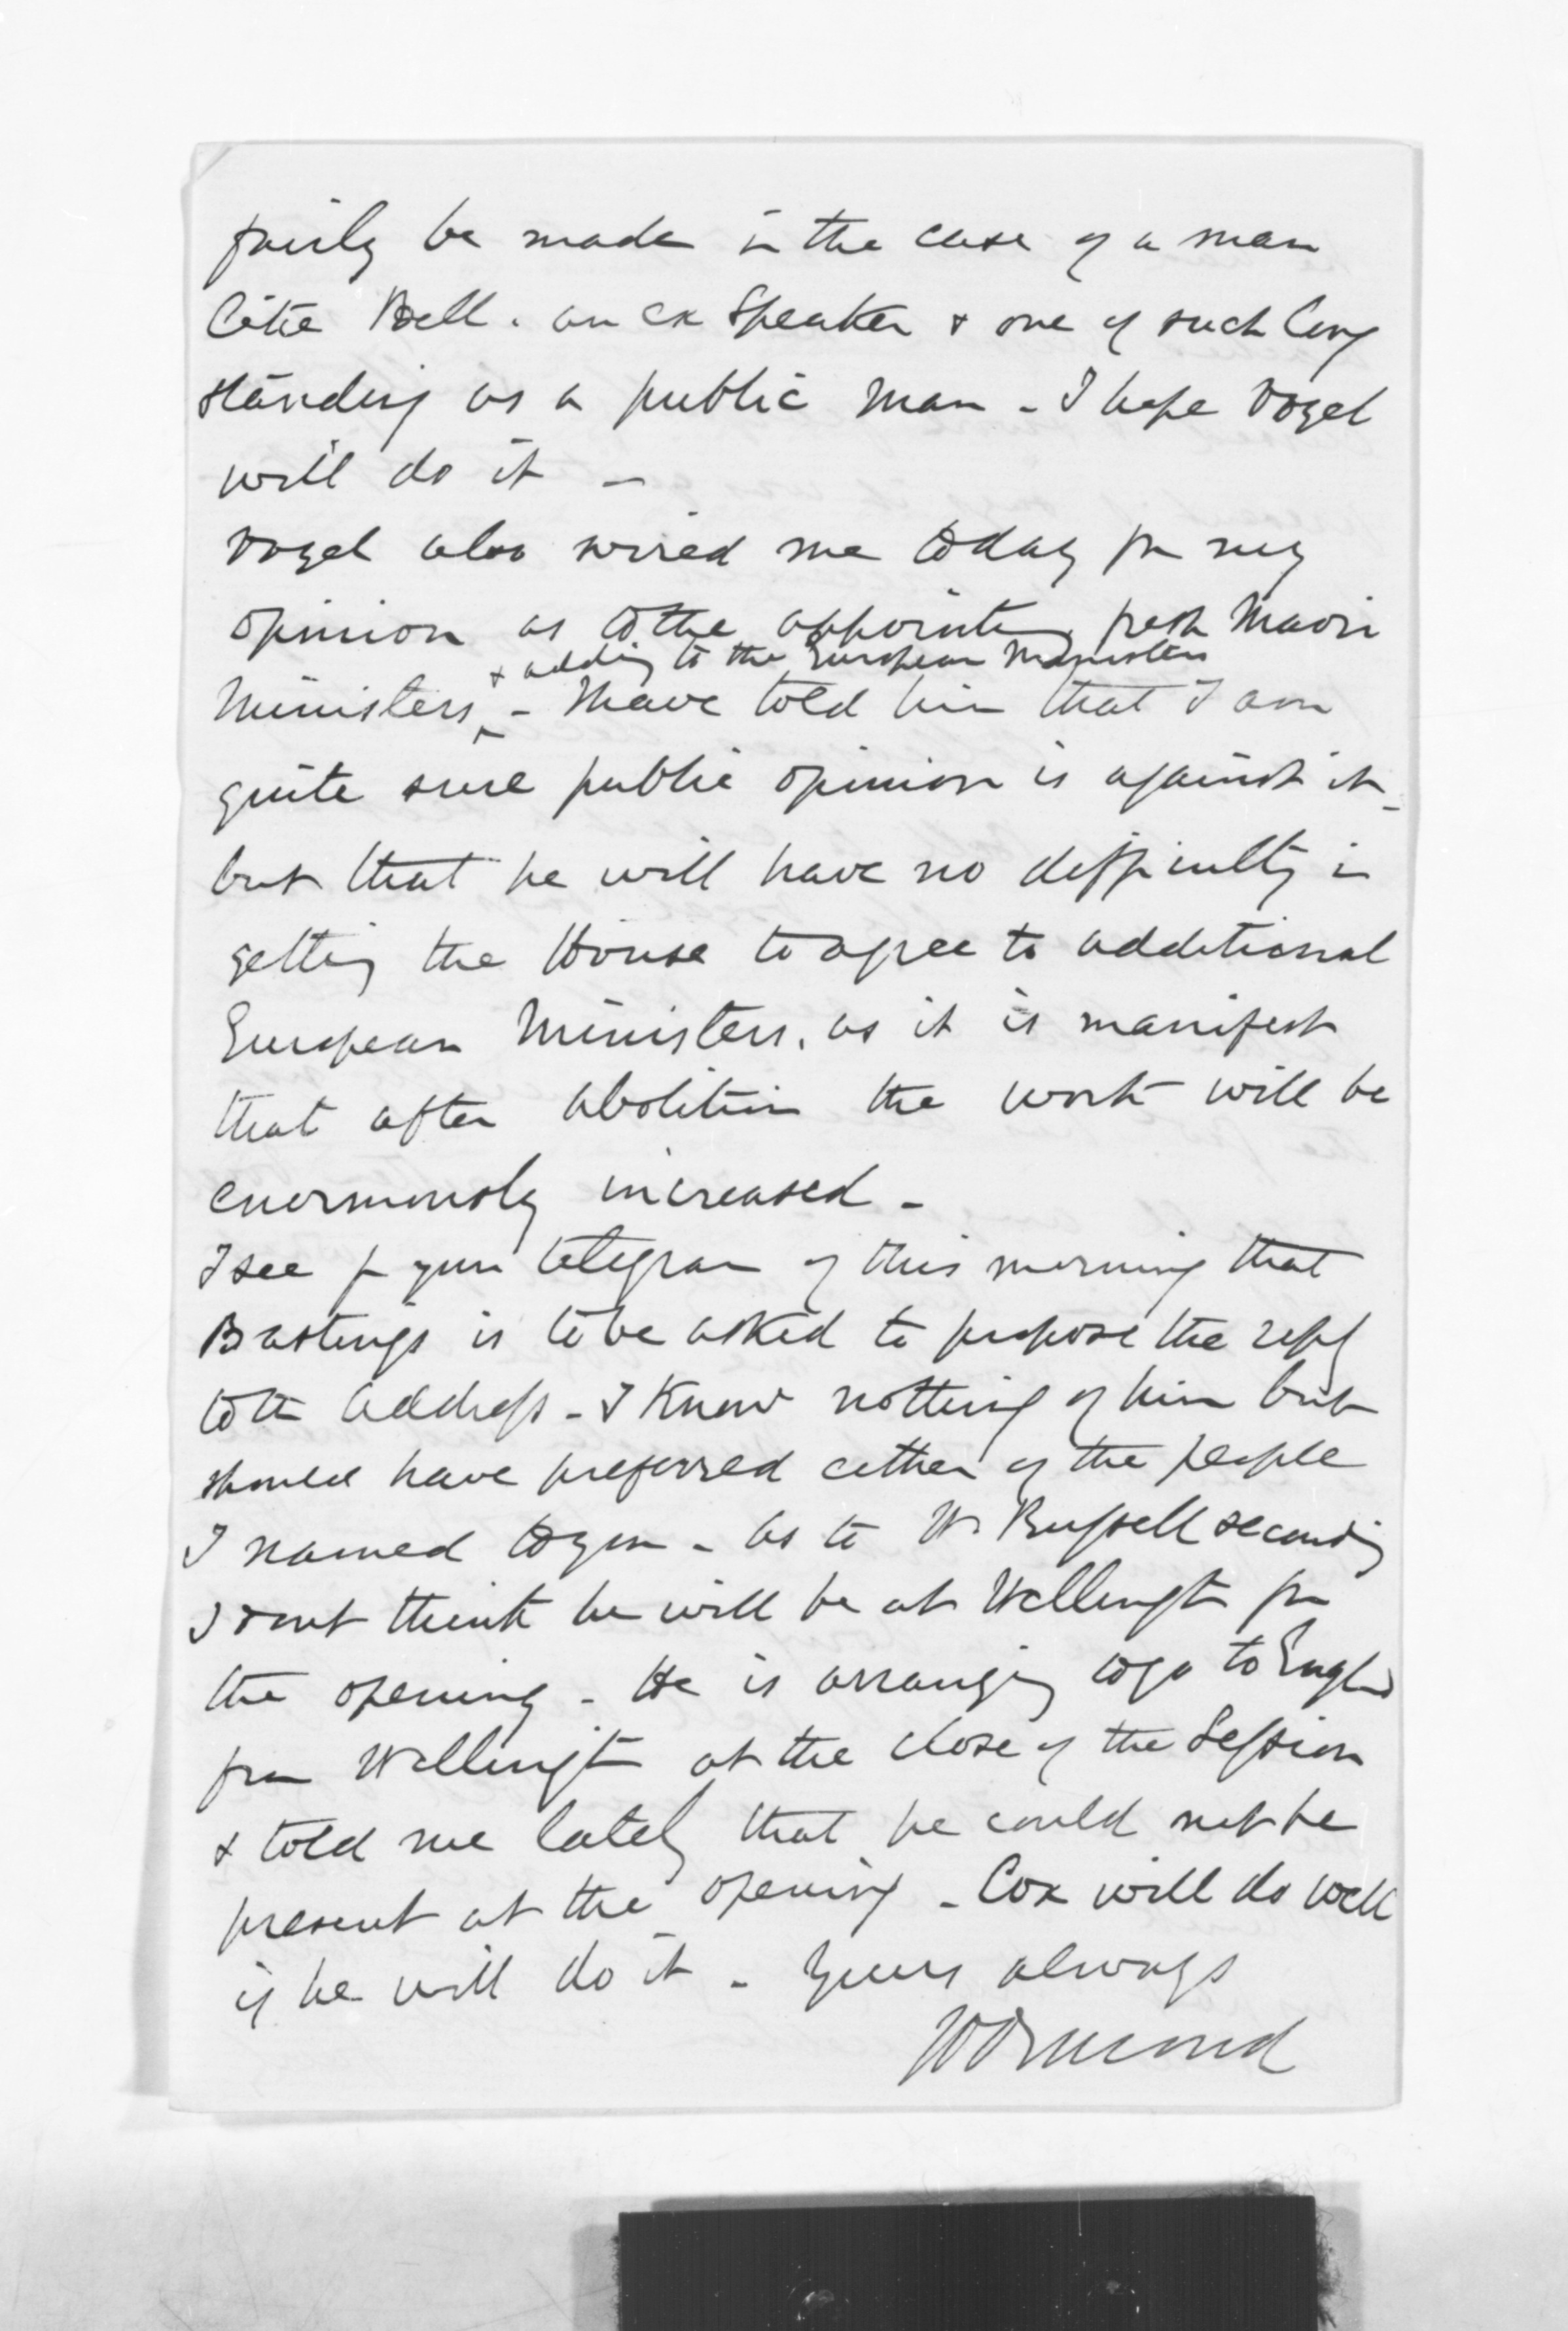 fairly be made in the case of a man
like Bell. an ex Speaker & one of such long
standing as a public man - I hope Vogel
will do it -
Vogel also wired me today for my
opinion as to the appointing fresh Maori
& adding to the European Ministers
Ministers - I have told him that I am
quite sure public opinion is against it -
but that he will have no difficulty in
getting the House to agree to additional
European Ministers. as it is manifest
that after abolition the work will be
enormously increased -
I see fr your telegram of this morning that
Bastings is to be asked to propose the reply
to the Address - I know nothing of him but
should have preferred either of the people
I named to you - as to W. Russell seconding
I dont think he will be at Wellington for
the opening - He is arranging to go to England
from Wellington at the close of the Session
& told me lately that he could not be
present at the opening - Cox will do well
if he will do it - Yours always
JDOrmond